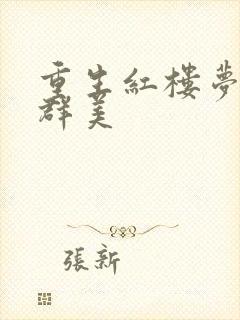 重生紅樓夢
群美
張新